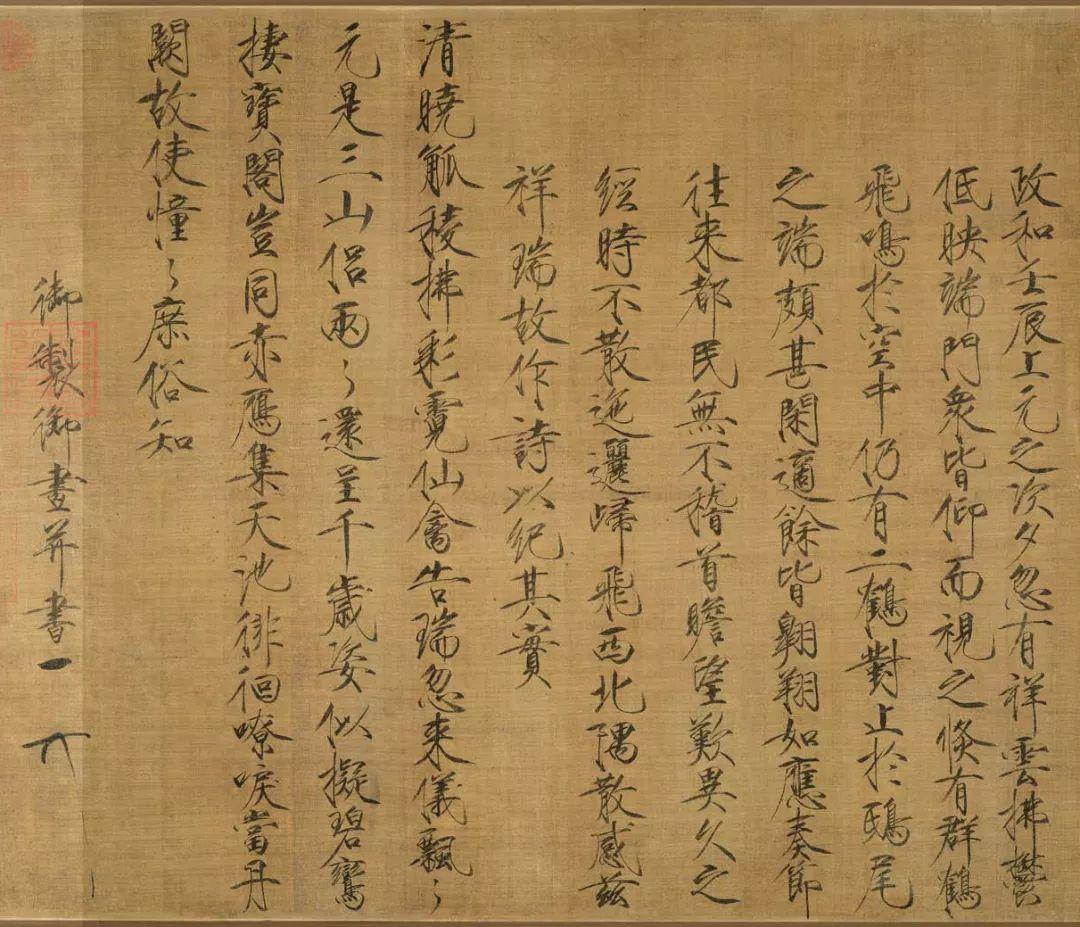 政和壬辰上元之次夕忽有祥雲拂鬱
低映端門衆皆仰而視之倐有群鶴
飛鳴於空中仍有二鶴對止於鴟尾
之端頗甚閑適餘皆翱翔如應奏節
往來都民無不稽首瞻望歎異久之
經時不散迤邐歸飛西北隅散感茲
祥瑞故作詩以紀其實
清曉觚稜拂彩霓仙禽告瑞忽來儀飄〻
元是三山侣兩〻還呈千歲姿似擬碧鸞
棲寳閣豈同赤鴈集天池徘徊嘹唳當丹
闕故使憧〻庶俗知
御製御畫并書